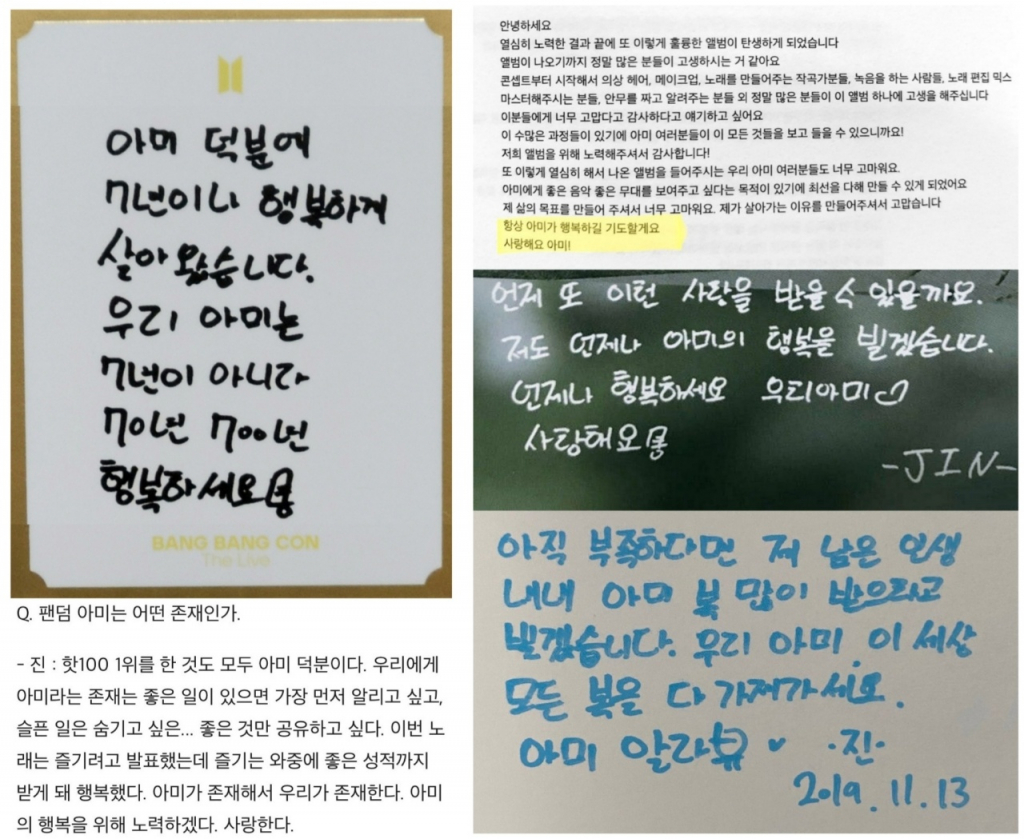 아미 덕분에
7년이나 행복하게
살아 왔습니다.
우리 아미는
7년이 아니라
70년 700년
행복하세요
BANG BANG CON
The Live
Q. 팬덤 아미는 어떤 존재인가.
- 진 : 핫100 1위를 한 것도 모두 아미 덕분이다. 우리에게
아미라는 존재는 좋은 일이 있으면 가장 먼저 알리고 싶고,
슬픈 일은 숨기고 싶은... 좋은 것만 공유하고 싶다. 이번 노
래는 즐기려고 발표했는데 즐기는 와중에 좋은 성적까지
받게 돼 행복했다. 아미가 존재해서 우리가 존재한다. 아미
의 행복을 위해 노력하겠다. 사랑한다.
안녕하세요
열심히 노력한 결과 끝에 또 이렇게 훌륭한 앨범이 탄생하게 되었습니다
앨범이 나오기까지 정말 많은 분들이 고생하시는 거 같아요
콘셉트부터 시작해서 의상 헤어, 메이크업, 노래를 만들어주는 작곡가분들, 녹음을 하는 사람들, 노래 편집 믹스
마스터해주시는 분들, 안무를 짜고 알려주는 분들 외 정말 많은 분들이 이 앨범 하나에 고생을 해주십니다
이분들에게 너무 고맙다고 감사하다고 얘기하고 싶어요
이 수많은 과정들이 있기에 아미 여러분들이 이 모든 것들을 보고 들을 수 있으니까요!
저희 앨범을 위해 노력해주셔서 감사합니다!
또 이렇게 열심히 해서 나온 앨범을 들어주시는 우리 아미 여러분들도 너무 고마워요.
아미에게 좋은 음악 좋은 무대를 보여주고 싶다는 목적이 있기에 최선을 다해 만들 수 있게 되었어요
제 삶의 목표를 만들어 주셔서 너무 고마워요. 제가 살아가는 이유를 만들어주셔서 고맙습니다
항상 아미가 행복하길 기도할게요
사랑해요 아미!
언제 또 이런 사랑을 받을 수 있을까요.
저도 언제나 아미의 행복을 빌겠습니다.
언제나 행복하세요 우리아미
사랑해요
-JIN-
아직 부족하다면 저 남은 인생
내내 아미 복 많이 받으라고
빌겠습니다. 우리 아미 이 세상
모든 복을 다 가져가세요.
아미 알라뷰 ·진·
2019.11.13